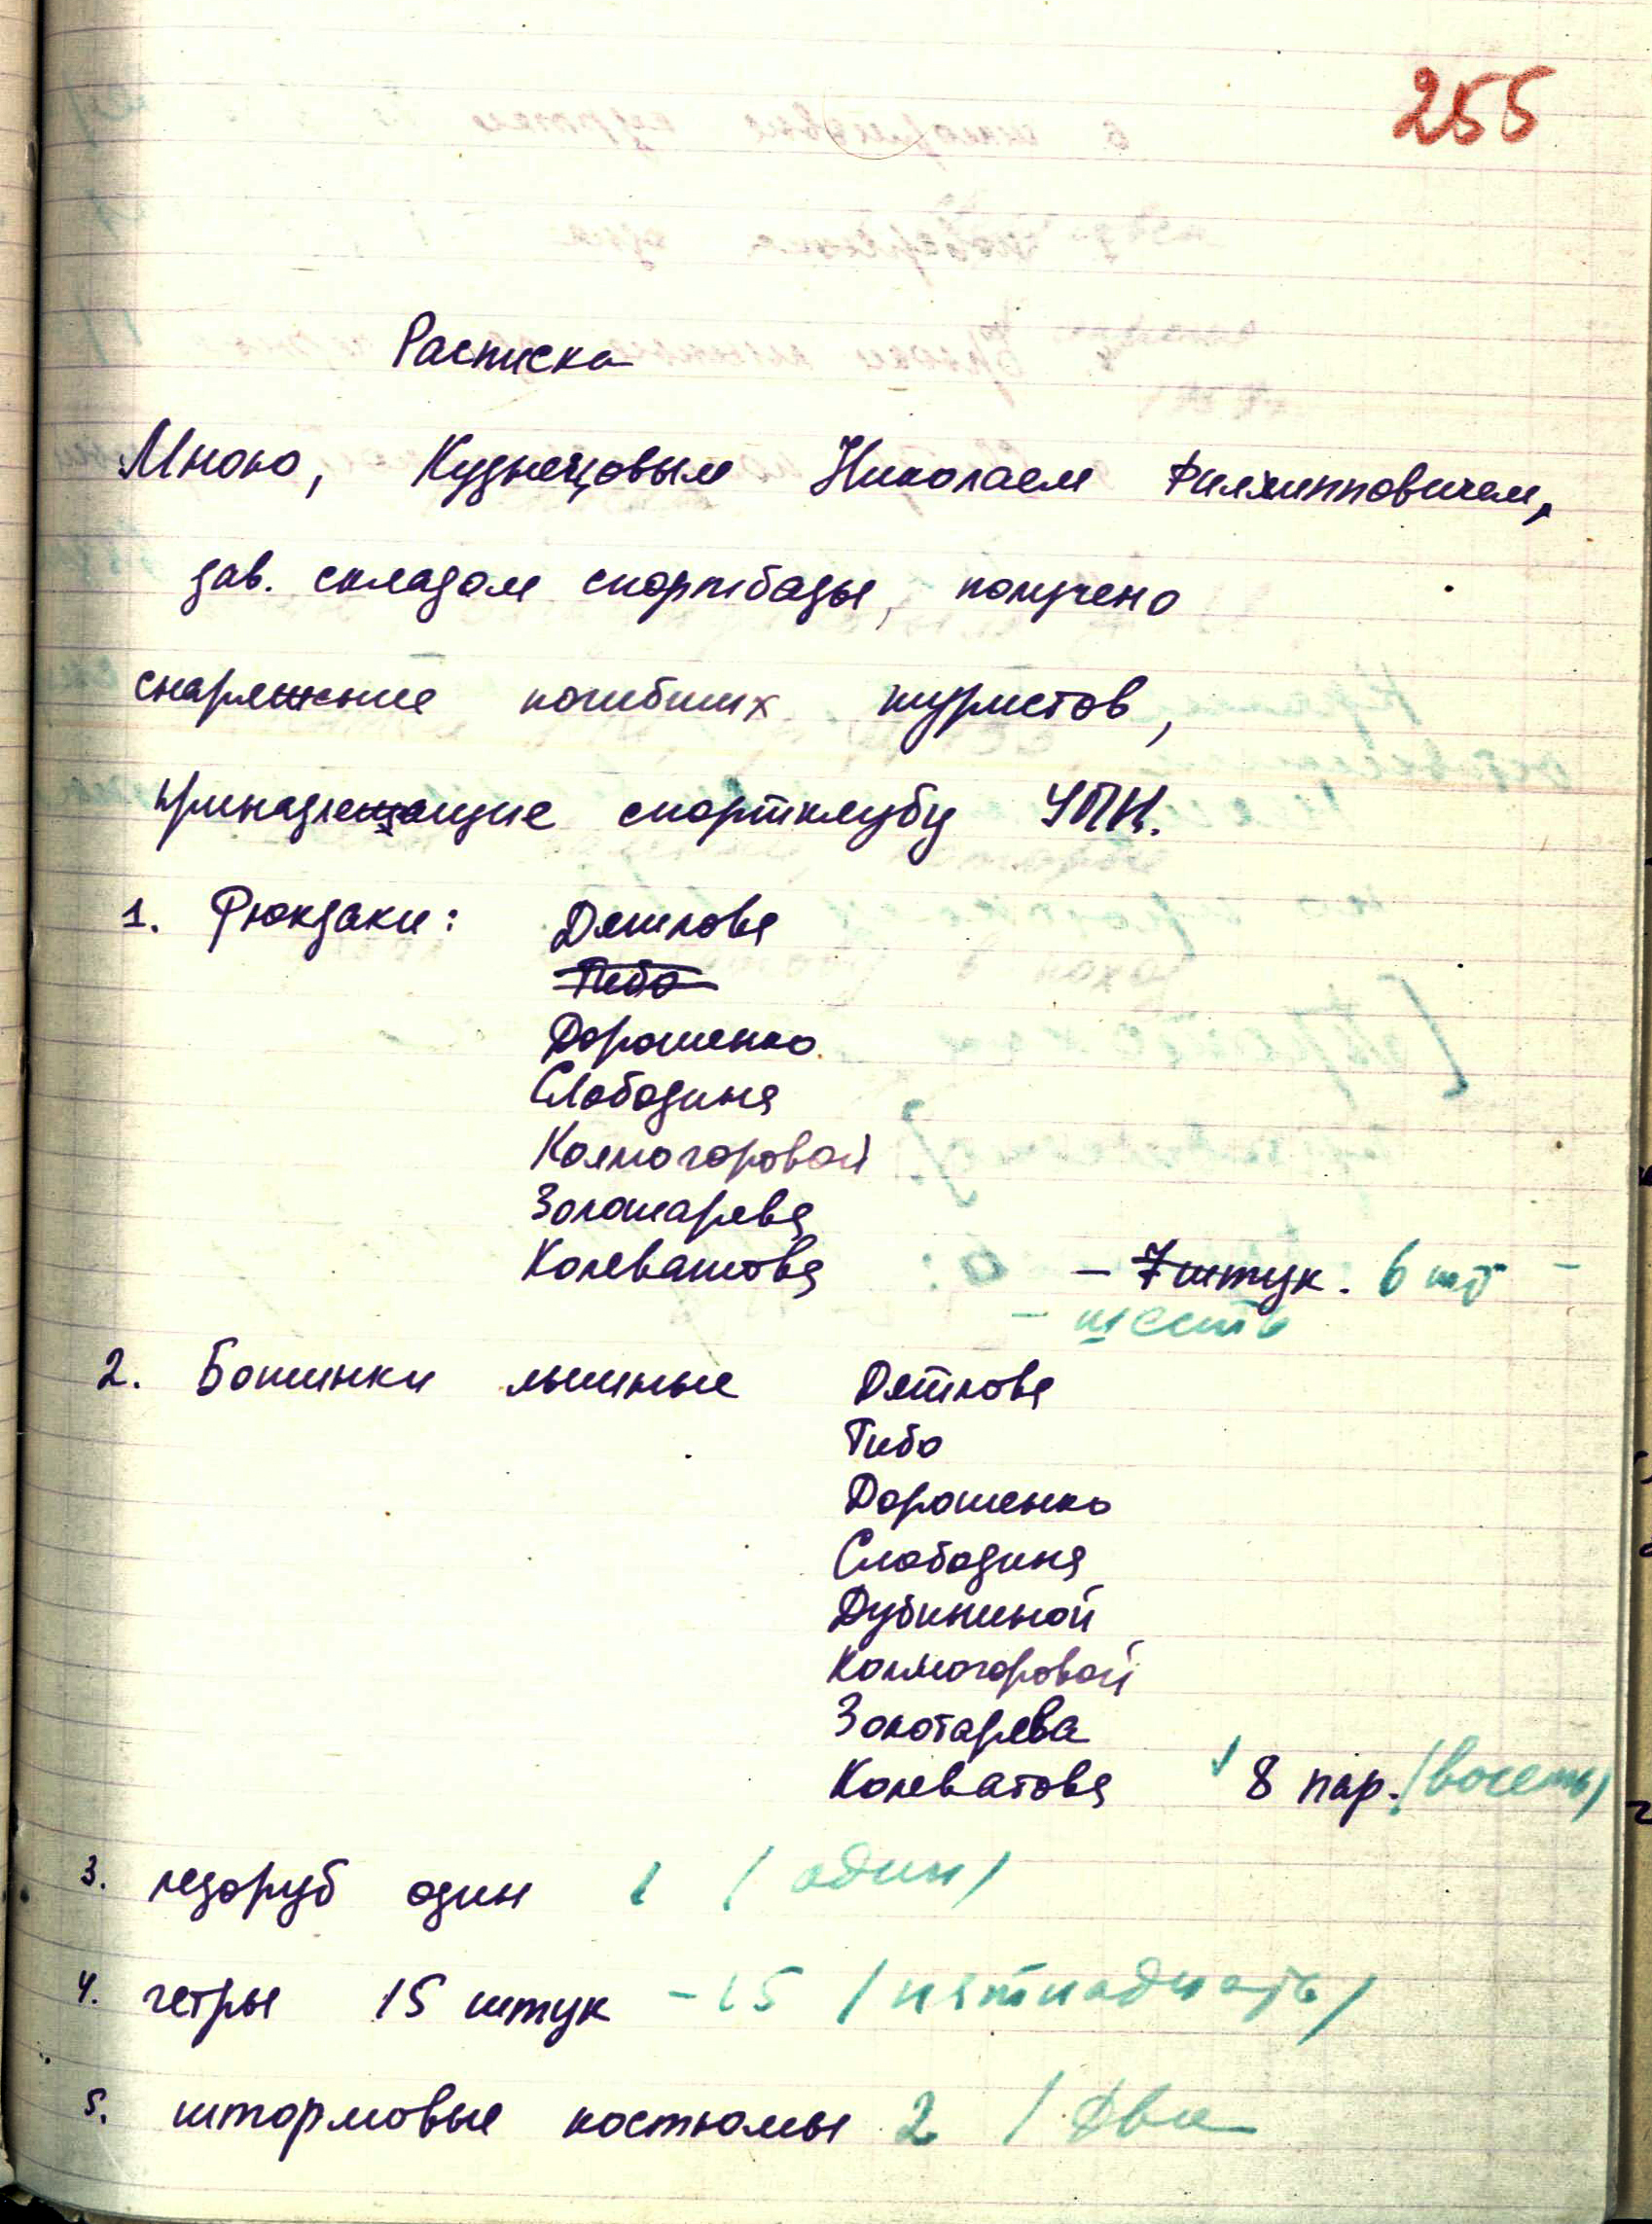 255
Расписка
Мною, Кузнецовым Николаем Филлипповичем,
зав. складом спортбазы, получено
снаряжение погибших туристов,
принадлежащие спортклубу УПИ.
1. Рюкзаки: Дятлова
Тибо
Дорошенко
Слободина
Колмогоровой
Золотарева
Колеватова – 7 штук. 6 шт –
– шесть
2. Ботинки лыжные Дятлова
Тибо
Дорошенко
Слободина
Дубининой
Колмогоровой
Золотарева
Колеватова 8 пар. /восемь/
3. ледоруб один 1 /один/
4. гетры 15 штук – 15 /пятнадцать/
5. штормовые костюмы 2 /два